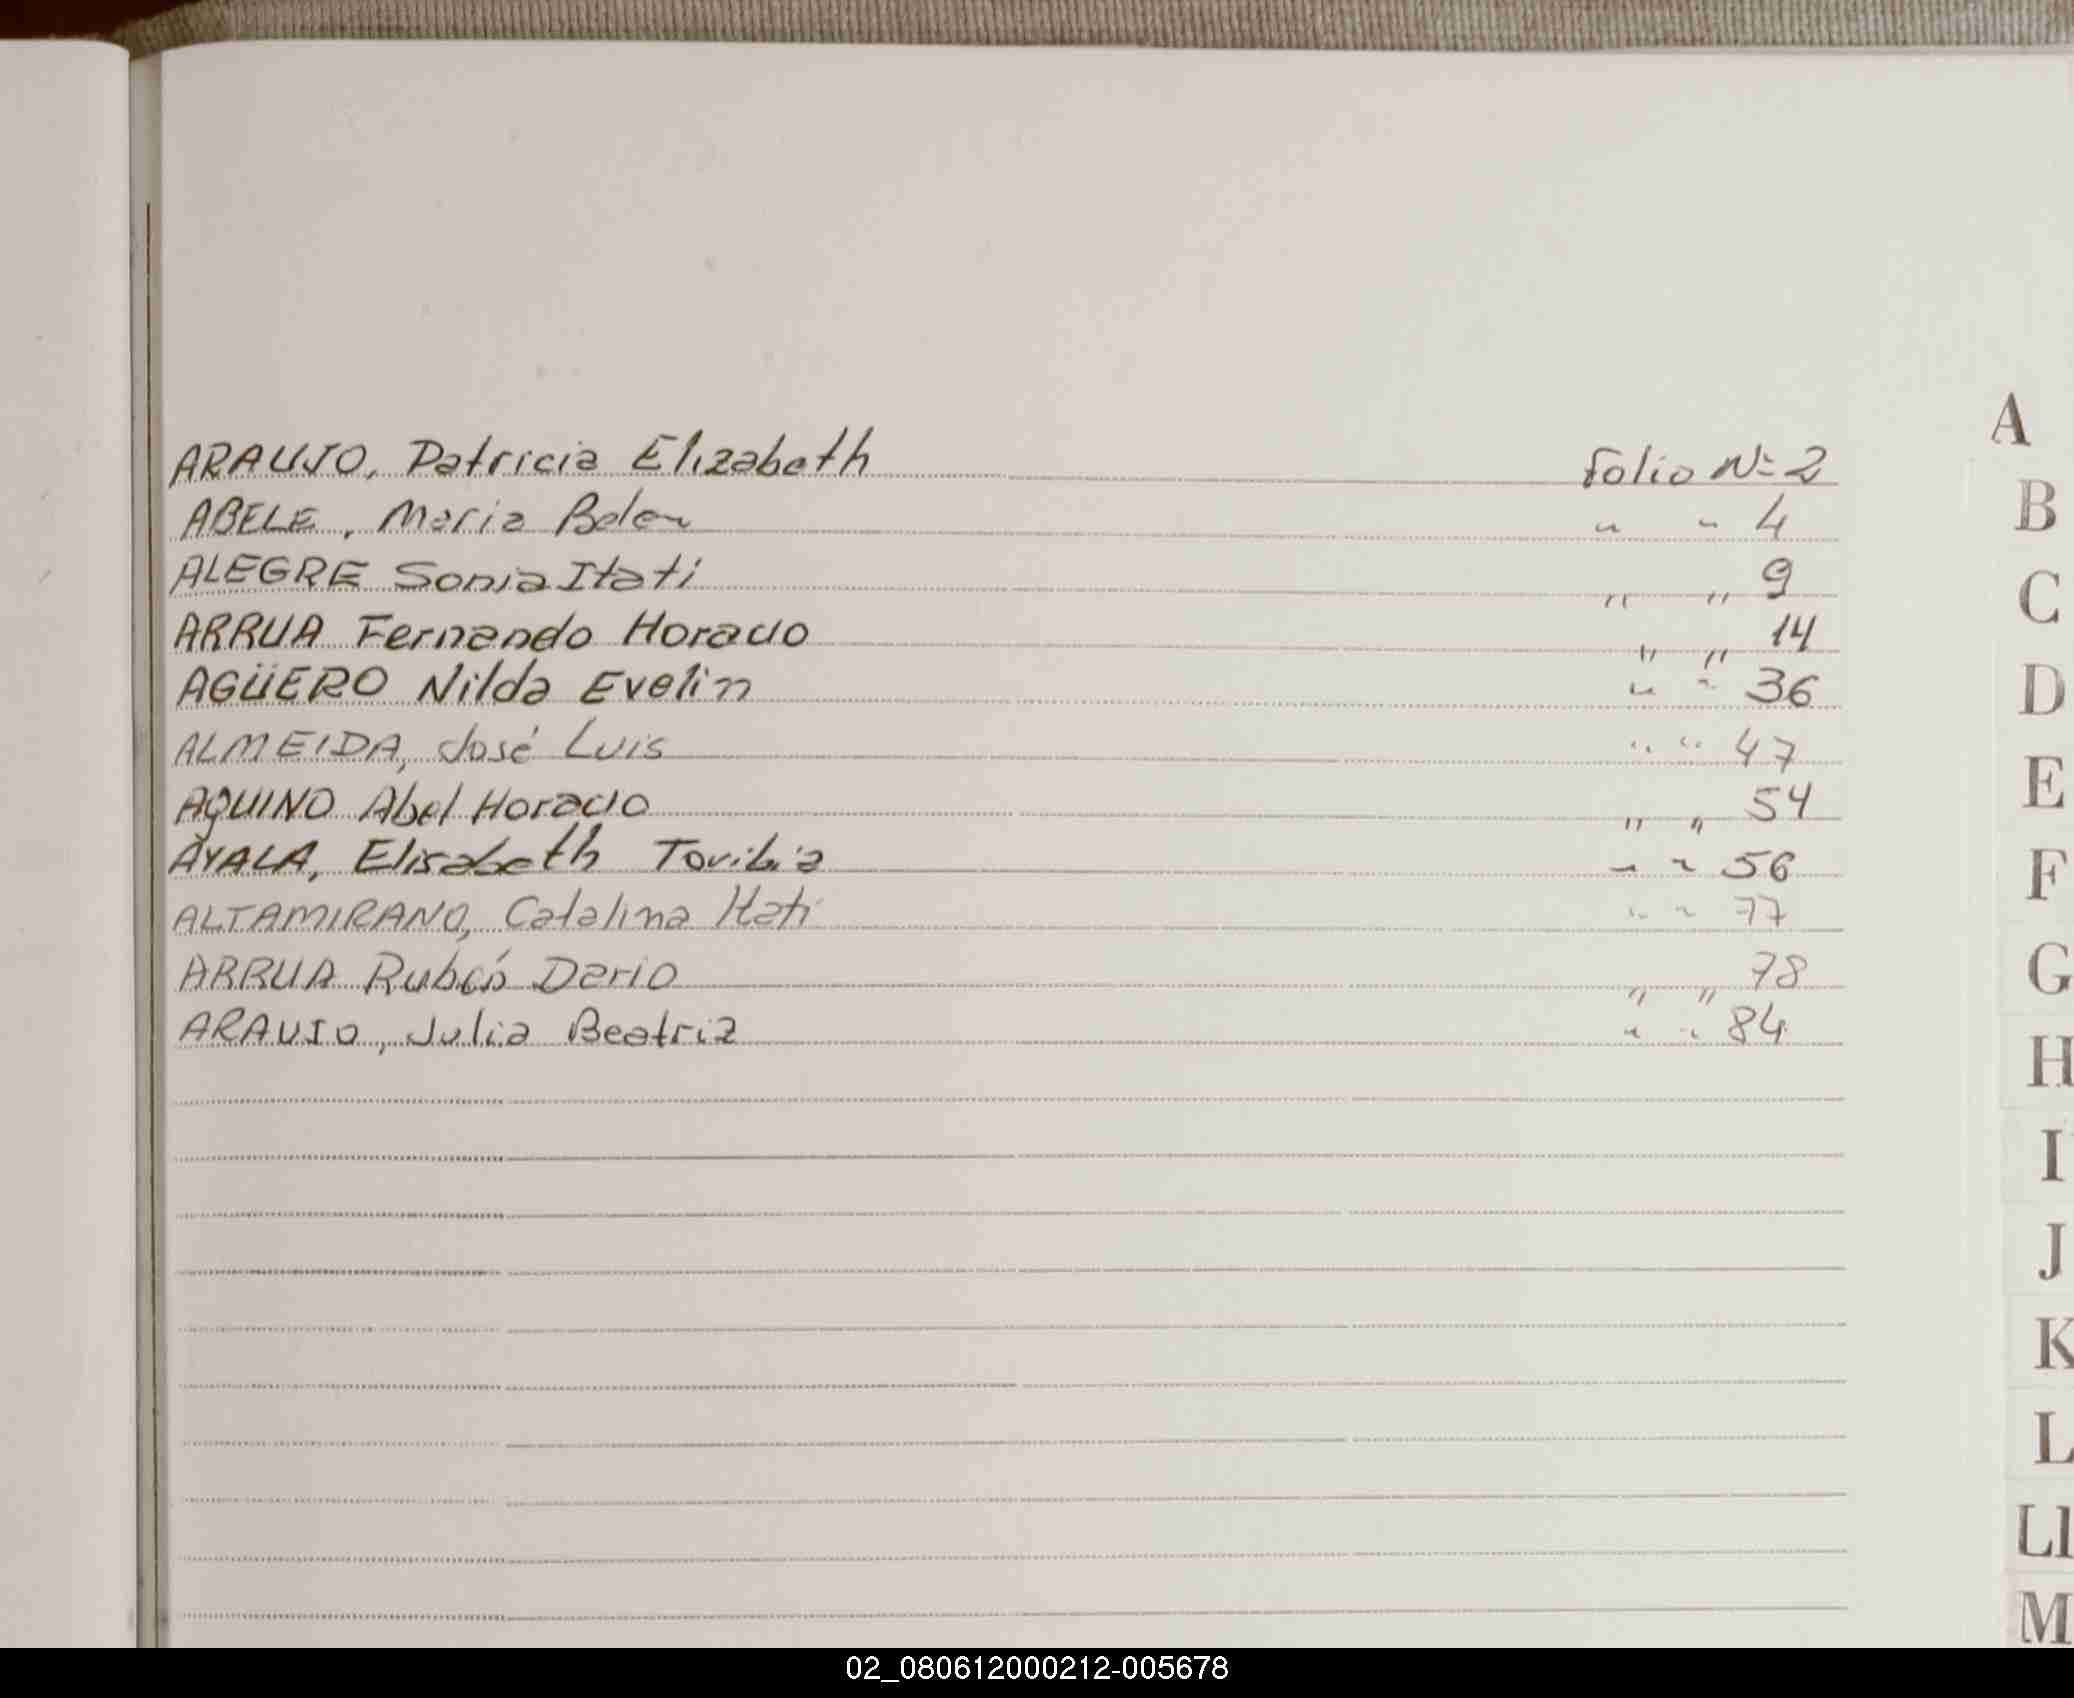 ARAUJO, Patricia Elizabeth Folio Nº 2
ABELE, Maria Belen " " 4
ALEGRE Sonia Itati " " 9
ARRUA Fernando Horacio " " 14
AGÜERO Nilda Evelin " " 36
ALMEIDA, José Luis " " 47
AQUINO Abel Horacio " " 54
AYALA, Elisabeth Toribia " " 56
ALTAMIRANO, Catalina Itatí " " 77
ARRUA Rubén Dario " " 78
ARAUJO, Julia Beatriz " " 84
A
B
C
D
E
F
G
H
I
J
K
L
Ll
M
02_080612000212-005678